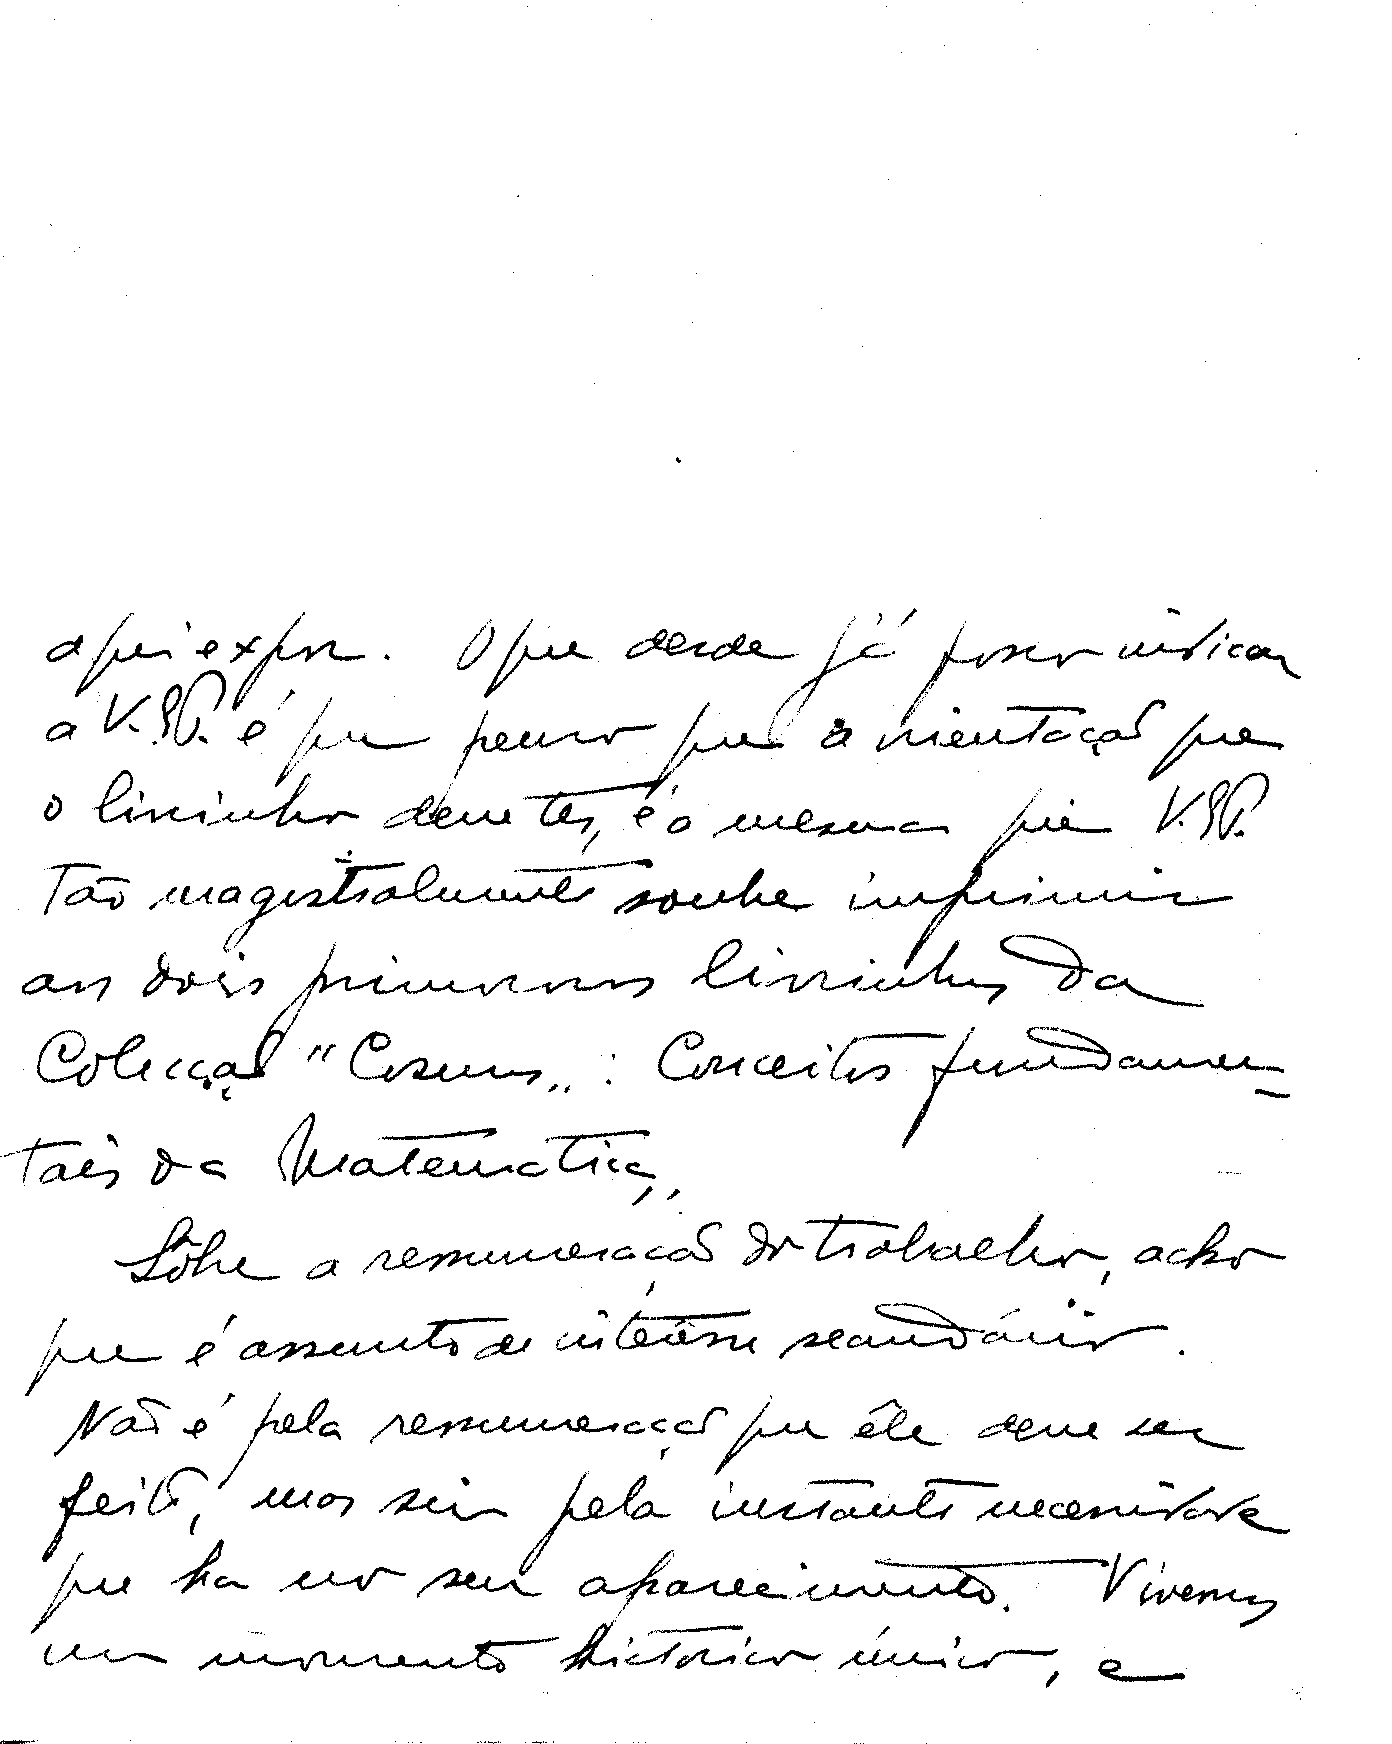 aqui expor. O que desde já posso indicar
a V. é que penso que a orientação que
o livrinho deve ter, é a mesma que V.
tão magistralmente soube imprimir
aos dois primorosos livrinhos da
Colecção "Cosmos„: Conceitos fundamen-
tais da Matematica,,
Sôbre a remuneração do trabalho, acho
que é assunto de interêsse secundário.
Não é pela remuneração que êle deve ser
feito, mas sim pela instante necessidade
que ha no seu aparecimento. Vivemos
um momento historico único, e